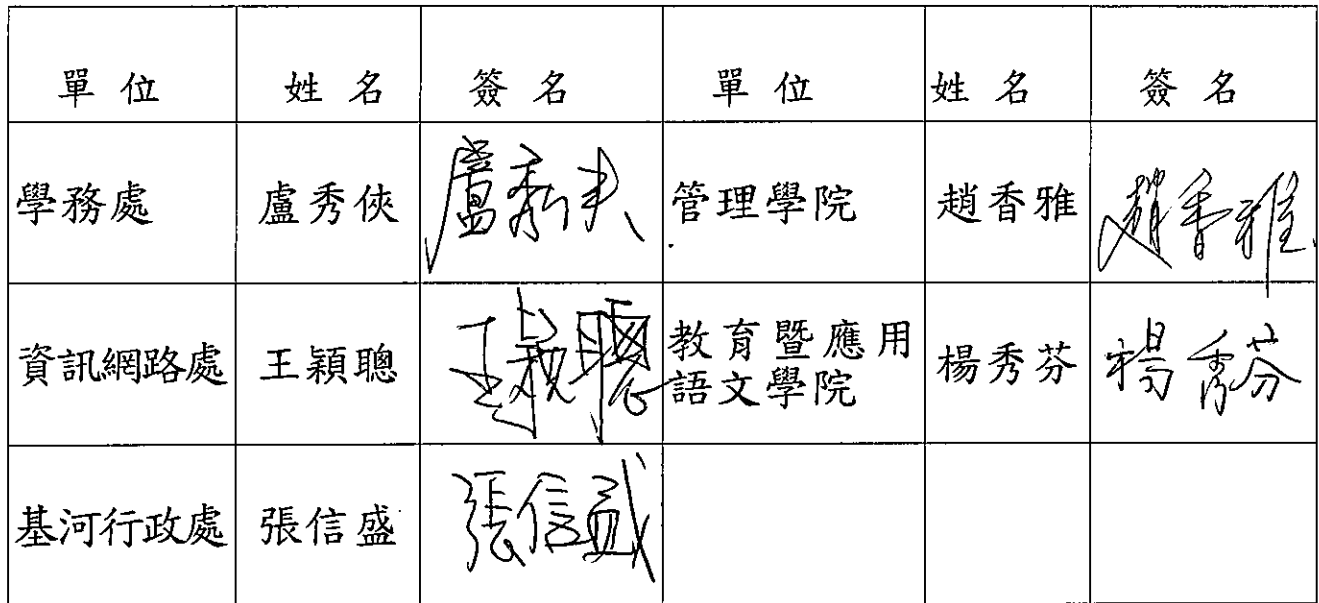 單位 姓名 簽名 單位 姓名 簽名
學務處 盧秀俠 盧秀俠 管理學院 趙香雅 趙香雅
資訊網路處 王穎聰 王穎聰 教育暨應用
語文學院 楊秀芬 楊秀芬
基河行政處 張信盛 張信盛